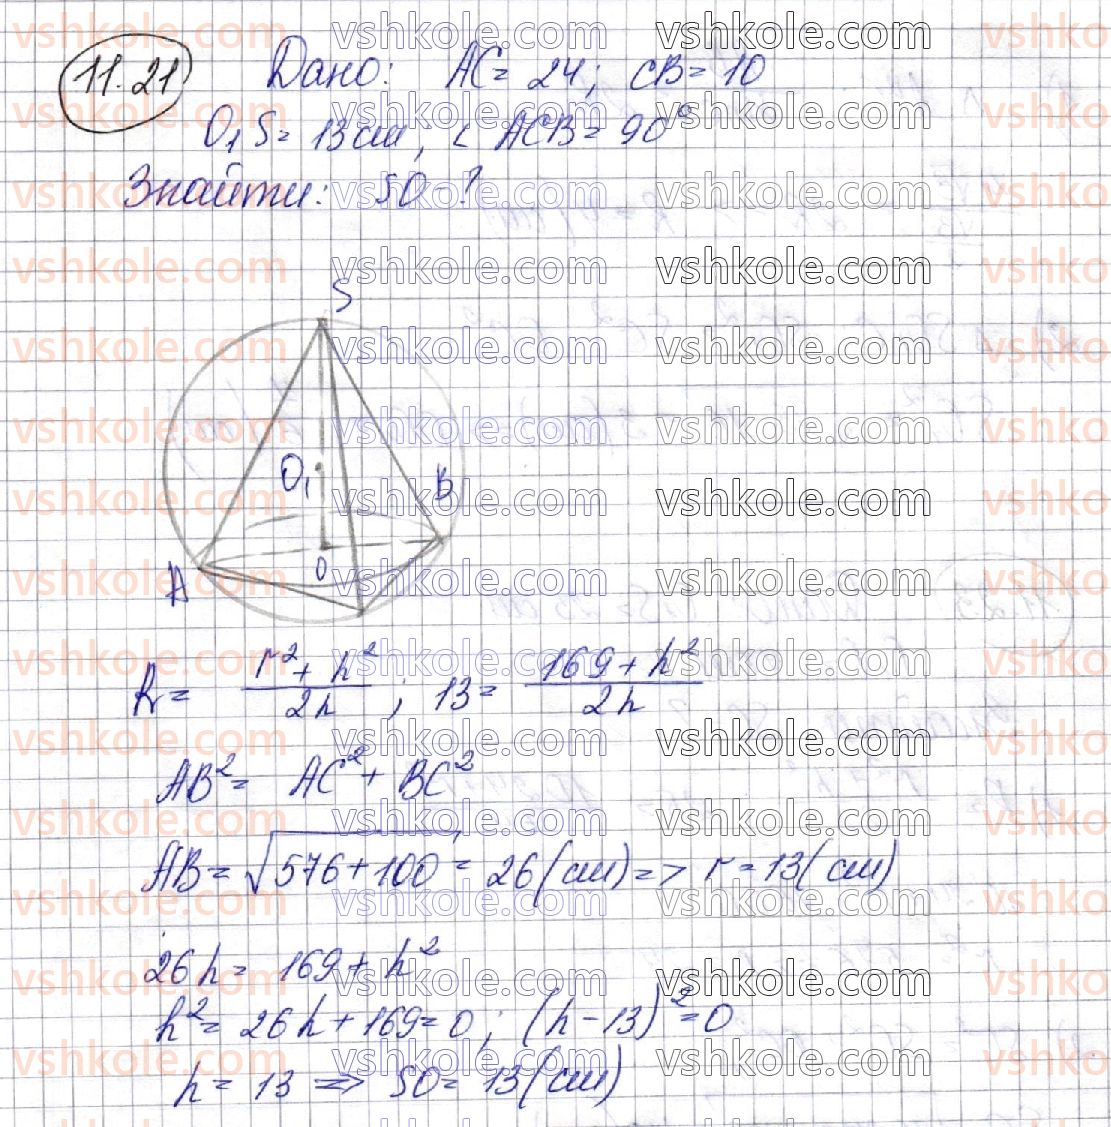 11.21 Дано: AC = 24; CB = 10
O₁S = 13 см; ∠ ACB = 90°
Знайти: SO - ?
S
O₁
B
A
O
R = \frac{r² + h²}{2h}; 13 = \frac{169 + h²}{2h}
AB² = AC² + BC²
AB = √(576 + 100) = 26 (см) => r = 13 (см)
26h = 169 + h²
h² = 26h + 169 = 0; (h - 13)² = 0
h = 13 => SO = 13 (см)